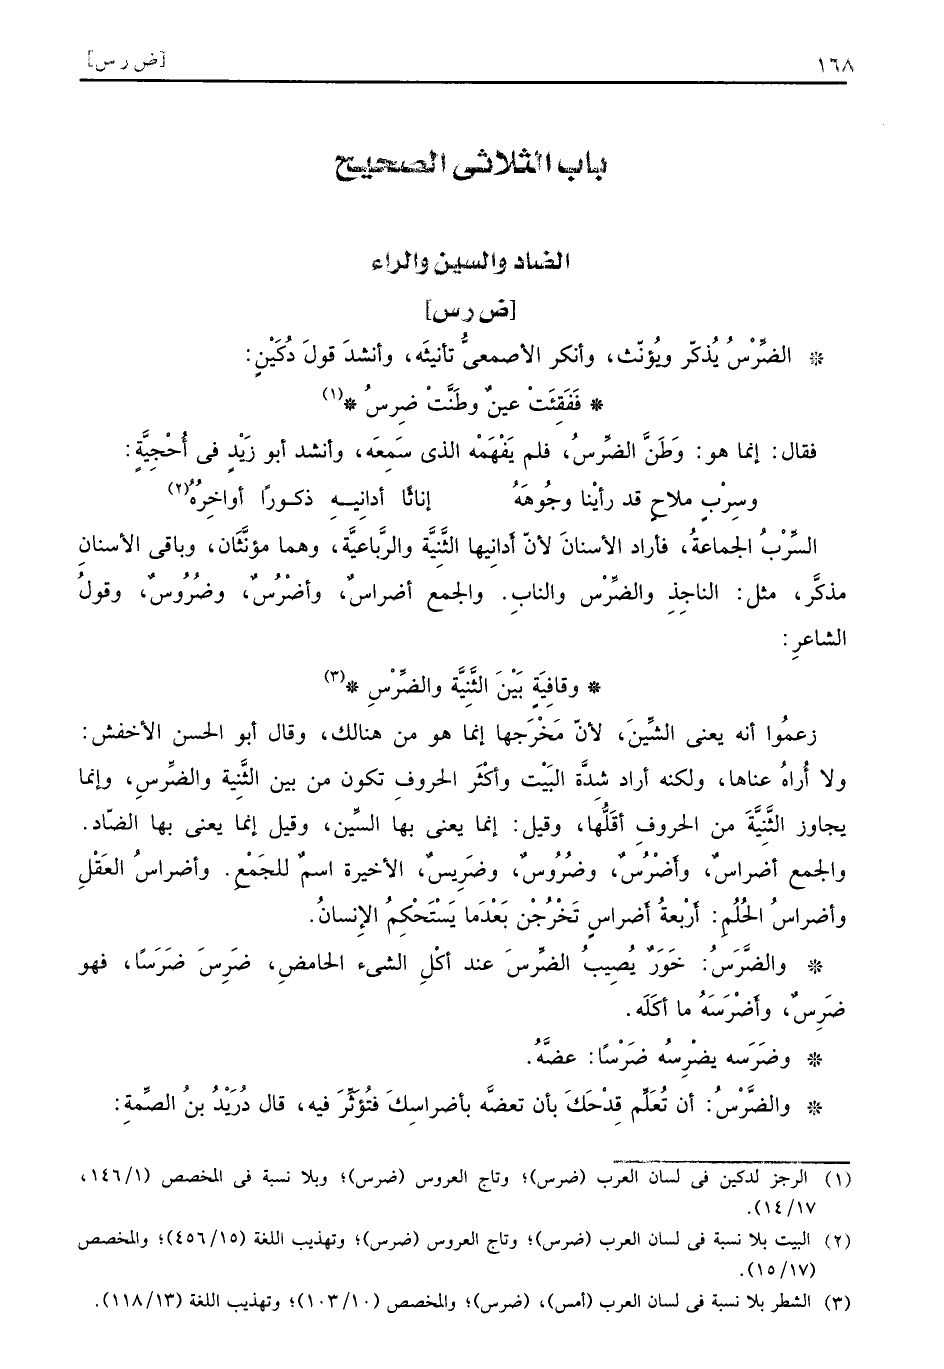 ١٦٨
[ض ر س]
باب الثلاثى الصحيح
الضاد والسين والراء
[ض ر س]
* الضِّرْسُ يُذكّر ويُؤنّث، وأنكر الأصمعىُّ تأنيثَه، وأنشدَ قولَ دُكَيْنٍ:
* فَفَقِئَتْ عينٌ وطَنَّتْ ضِرسُ *(١)
فقال: إنما هو: وَطَنَّ الضِّرسُ، فلم يَفْهَمْه الذى سَمعَه، وأنشد أبو زَيْدٍ فى أُحْجِيَّةٍ:
وسِرْبٍ ملاحٍ قد رأينا وجُوهَهُ إناثًا أدانيــهِ ذكـورًا أواخِرُهُ(٢)
السِّرْبُ الجماعةُ، فأراد الأسنانَ لأنّ أدانِيها الثَّنِيَّة والرَّباعِيَّة، وهما مؤنَّثَان، وباقى الأسنانِ
مذكَّر، مثل: الناجِذِ والضِّرْس والناب. والجمع أضراسٌ، وأضْرُسٌ، وضُرُوسٌ، وقولُ
الشاعرِ:
* وقافِيَةٍ بَيْنَ الثَّنِيَّة والضِّرْسِ *(٣)
زعمُوا أنه يعنى الشِّينَ، لأنّ مَخْرَجها إنما هو من هنالك، وقال أبو الحسن الأخفش:
ولا أُراهُ عناها، ولكنه أراد شِدَّة البَيْت وأكْثَر الحروفِ تكون من بين الثَّنية والضِّرس، وإنما
يجاوز الثَّنِيَّةَ من الحروف أقَلُّها، وقيل: إنما يعنى بها السِّين، وقيل إنما يعنى بها الضّاد.
والجمع أضراسٌ، وأضْرُسٌ، وضُرُوسٌ، وضَرِيسٌ، الأخيرة اسمٌ للجَمْعِ. وأضراسُ العَقْلِ
وأضراسُ الحُلُمِ: أرْبعةُ أضراسٍ تَخْرُجْن بَعْدَما يَسْتَحْكِمُ الإنسانُ.
* والضَّرَسُ: خَوَرٌ يُصِيبُ الضِّرسَ عند أكلِ الشىء الحامضِ، ضَرِسَ ضَرَسًا، فهو
ضَرِسٌ، وأضْرَسَهُ ما أكَلَه.
* وضَرَسه يضْرِسُه ضَرْسًا: عضَّهُ.
* والضَّرْسُ: أن تُعَلِّم قِدْحَكَ بأن تعضّه بأضراسِكَ فتُؤثِّرَ فيه، قال دُرَيْدُ بنُ الصِّمةِ:
(١) الرجز لدكين فى لسان العرب (ضرس)؛ وتاج العروس (ضرس)؛ وبلا نسبة فى المخصص (١٤٦/١،
١٤/١٧).
(٢) البيت بلا نسبة فى لسان العرب (ضرس)؛ وتاج العروس (ضرس)؛ وتهذيب اللغة (٤٥٦/١٥)؛ والمخصص
(١٥/١٧).
(٣) الشطر بلا نسبة فى لسان العرب (أمس)، (ضرس)؛ والمخصص (١٠٣/١٠)؛ وتهذيب اللغة (١١٨/١٣).